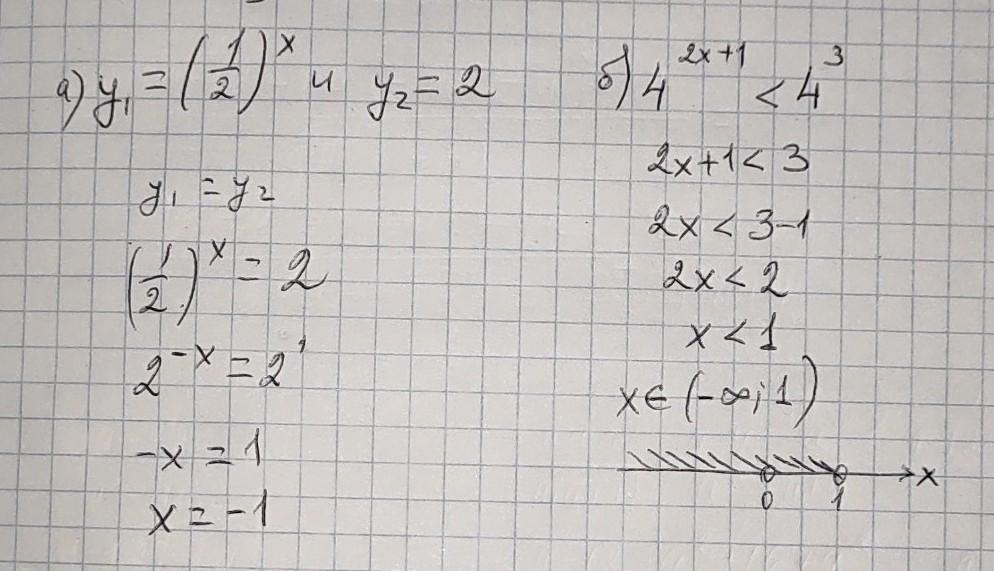 а) y₁ = (1/2)^x и y₂ = 2
y₁ = y₂
(1/2)^x = 2
2^-x = 2^1
-x = 1
x = -1
б) 4^2x+1 < 4^3
2x+1 < 3
2x < 3-1
2x < 2
x < 1
x ∈ (-∞; 1)
0 1 x